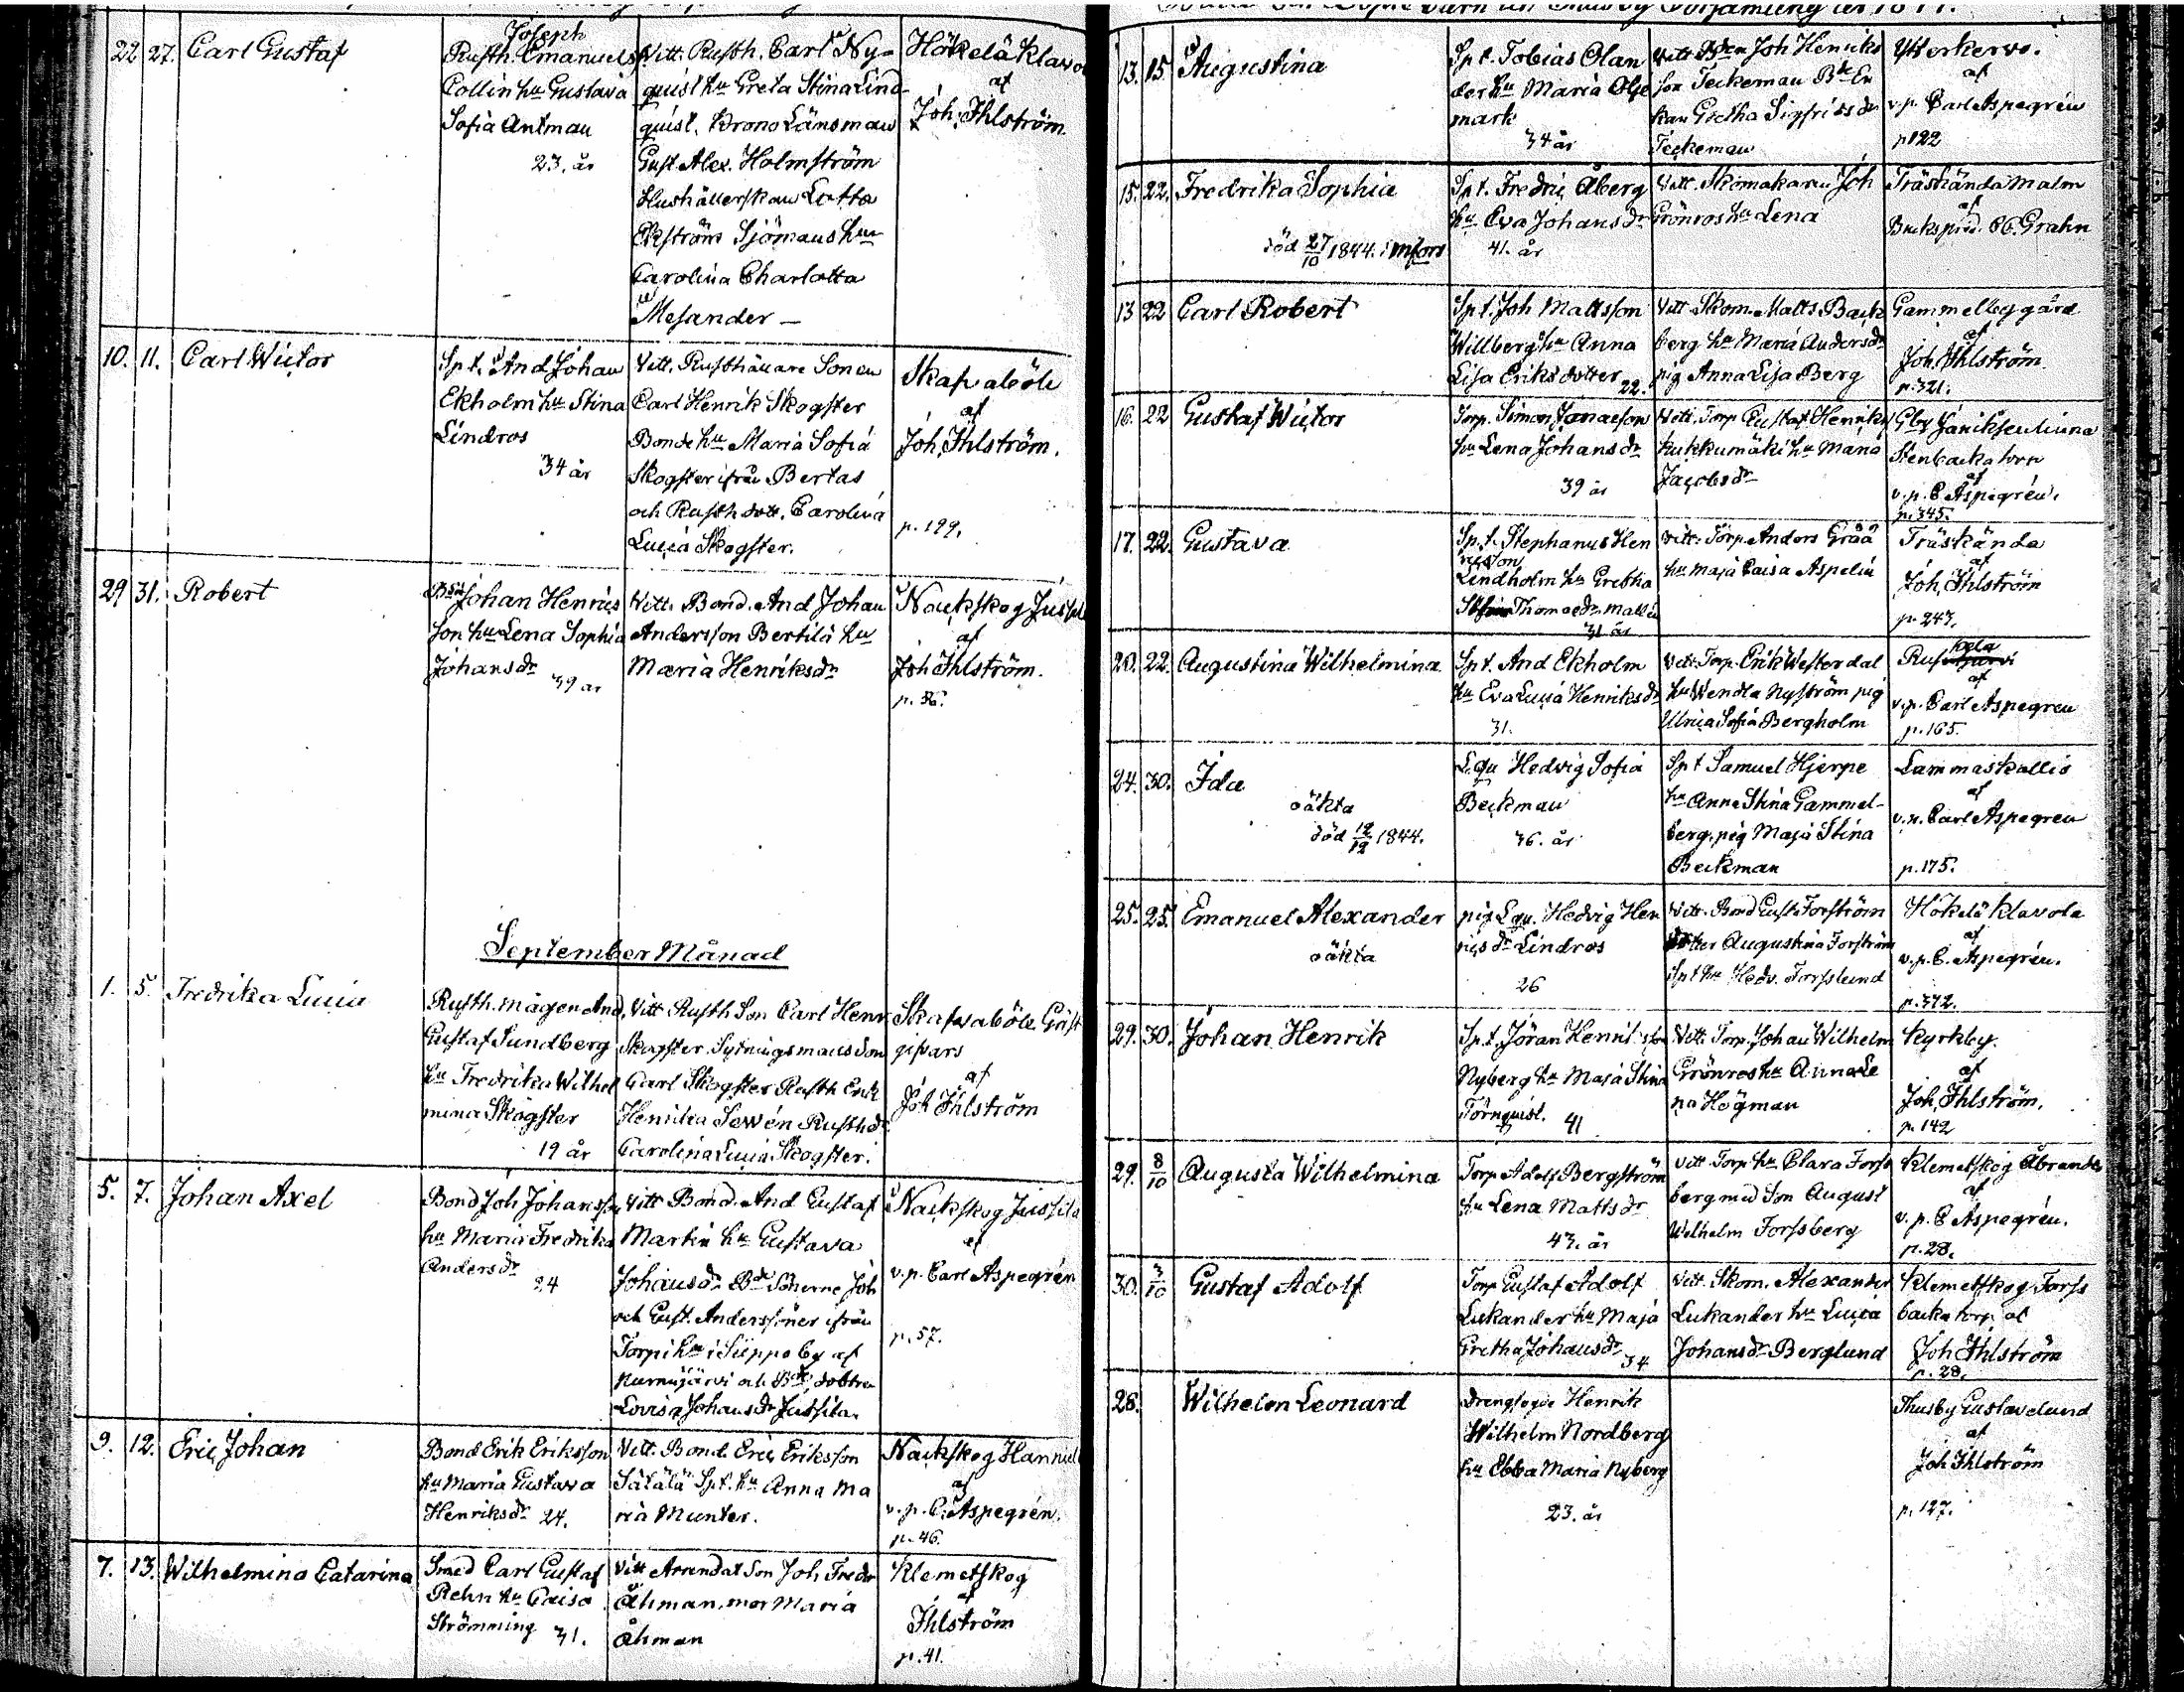 22. 27. Carl Gustaf
Joseph
Rusth. Emanuels
Collin hu Gustava
Sofia Antman
23. år
Vitt. Rusth. Carl Ny-
quist hu Greta Stina Lind-
quist. Krono Länsman
Gust. Alex. Holmström
Hushållerskan Lotta
Ekström Sjömans hu
Carolina Charlotta
Mesander —
Hökelä Klavo
af
Joh. Ihlström
10. 11. Carl Wictor
Spt. And Johan
Ekholm hu Stina
Lindros
34 år
Vitt. Rusthållare Sonen
Carl Henrik Skogster
Bonde hu Maria Sofia
Skogster ifrån Bertas
och Rusth dott. Carolina
Lucia Skogster.
Skafvaböle
af
Joh. Ihlström.
p. 199.
29 31. Robert
Bdn Johan Henrics
son hu Lena Sophia
Johansdr
39 år
Vitt. Bond. And Johan
Andersson Bertila hu
Maria Henriksdr
Nackskog Jussila
af
Joh Ihlström.
p. 56.
September Månad
1. 5. Fredrika Lucia
Rusth. mågen And.
Gustaf Sundberg
hu Fredrika Wilhel
mina Skogster
19 år
Vitt Rusth Son Carl Henr
Skogster. Sytningsmans Son
Carl Skogster Rusth Erik
Henrika Sewén Rusthdr
Carolina Lucia Skogster.
Skafvaböle Gäst
gifvars
af
Joh Ihlström
5. 7. Johan Axel
Bond Joh Johansson
hu Maria Fredrika
Andersdr
24
Vitt Bond. And Gustaf
Martin hu Gustava
Johansdr Bde Sönerne Joh
och Gust. Anderssöner ifrån
Torpi hn i Siippo by af
Nurmijärvi och Bde dottren
Lovisa Johansdr Jussila.
Nackskog Jussila
af
v.p. Carl Aspegrén
p. 57.
9. 12. Eric Johan
Bond Erik Eriksson
hu Maria Gustava
Henriksdr 24.
Vitt. Bond. Eric Eriksson
Sätälä Spt. hu Anna Ma
ria Munter.
Nackskog Hannul
af
v.p. C. Aspegrén.
p. 46.
7. 13. Wilhelmina Catarina
Smed Carl Gustaf
Rehn hu Caisa
Strömming 31.
Vitt Arrendat Son Joh Fredr
Åhman, mor Maria
Åhman
Klemetskog
af
Ihlström
p. 41.
13. 15 Augustina
Spt. Tobias Olan
der hu Maria Olje
mark
34 år
Vitt Bden Joh Henriks
son Teckeman Bde En
kan Gretha Sigfridsdr
Teckeman
Ytterkervo.
af
v.p. Carl Aspegrén
p 122
15. 22. Fredrika Sophia
död 27/10 1844.
Spt. Fredric Åberg
hu Eva Johansdr
41. år
Vitt. Skomakaren Joh
Grönros hu Lena
Träskända Malm
af
Brukspred. Grahn
13 22 Carl Robert
Spt. Joh Mattsson
Willberg hu Anna
Lisa Eriksdotter 22.
Vitt Skom. Matts Back
berg hu Maria Andersdr
pig Anna Lisa Berg
Gammelby gård
af
Joh. Ihlström
p. 321.
16. 22 Gustaf Wictor
Torp. Simon Jonaeson
hu Lena Johansdr
39 år
Vitt. Torp Gustaf Henriks
Kukkumäki hu Maria
Jacobsdr
Gby
Stenbacka torp
af
v.p. C Aspegrén.
p. 345.
17. 22. Gustava
Spt. Stephanus Hen
ricsson
Lindholm hu Gretha
Thomaedr
31 år
Vitt. Torp. Anders Grää
hu Maja Caisa Aspelin
Träskända
af
Joh, Ihlström
p. 247.
20. 22. Augustina Wilhelmina
Spt. And Ekholm
hu Eva Lucia Henriksdr
31.
Vitt Torp. Erik Westerdal
hu Wendla Nyström pig
Ulrica Sofia Bergholm
Rus
af
v.p. Carl Aspegren
p. 165.
24. 30. Ida
oäkta
död 12/12 1844.
L.qu Hedvig Sofia
Beckman
36. år
Spt Samuel Hjerpe
hu Anna Stina Gammel-
berg. pig Maja Stina
Beckman
Lammaskallio
af
v.p. Carl Aspegren
p. 175.
25. 25. Emanuel Alexander
oäkta
pig L.qu. Hedvig Hen
ricsdr Lindros
26
Vitt. Bond Gust. Forström
dotter Augustina Forström
Spt hu Hedv. Forsslund
Hökelä Klavola
af
v.p. C. Aspegrén.
p. 372.
29. 30. Johan Henrik
Spt. Jöran Henriksson
Nyberg hu Maja Stina
Törnquist. 41
Vitt. Torp. Johan Wilhelm
Grönros hu Anna Le
na Högman
Kyrkby.
af
Joh, Ihlström.
p. 142
29. 8/10 Augusta Wilhelmina
Torp Adolf Bergström
hu Lena Mattsdr
43. år
Vitt Torp hu Clara Forss
berg med Son August
Wilhelm Forssberg
Klemetskog Åbrandes
af
v.p. C Aspegrén.
p. 28.
30. 3/10 Gustaf Adolf
Torp Gustaf Adolf
Lukander hu Maja
Gretha Johansdr 34
Vitt. Skom. Alexander
Lukander hu Lucia
Johansdr Berglund
Klemetskog Forss
backa torp af
Joh Ihlström
p. 28.
28. Wilhelm Leonard
Drengfogde Henrik
Wilhelm Nordberg
hu Ebba Maria Nyberg
23. år
Thusby Gustavelund
af
Joh Ihlström
p. 127.